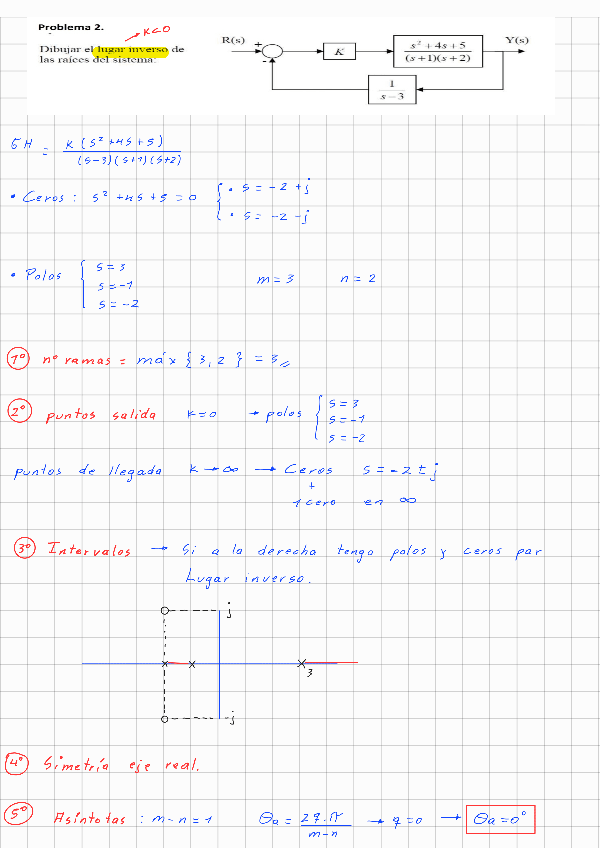 Problema 2.
K<0
Dibujar el lugar inverso de
las raíces del sistema:
R(s) + - K s² + 4s + 5 / (s+1)(s+2) Y(s)
1 / s − 3
GH = K (s² + 4s + 5) / (s-3)(s+1)(s+2)
• Ceros : s² + 4s + 5 = 0 { • s = -2 + j
• s = -2 - j
• Polos { s = 3
s = -1
s = -2
m = 3 n = 2
1º nº ramas = máx { 3, 2 } = 3
2º puntos salida K=0 → polos { s = 3
s = -1
s = -2
puntos de llegada K → ∞ → Ceros s = -2 ± j
+
1 cero en ∞
3º Intervalos → Si a la derecha tengo polos y ceros par
Lugar inverso.
j
3
-j
4º Simetría eje real.
5º Asíntotas : m - n = 1 θa = 2q·π / m-n → q = 0 → θa = 0°